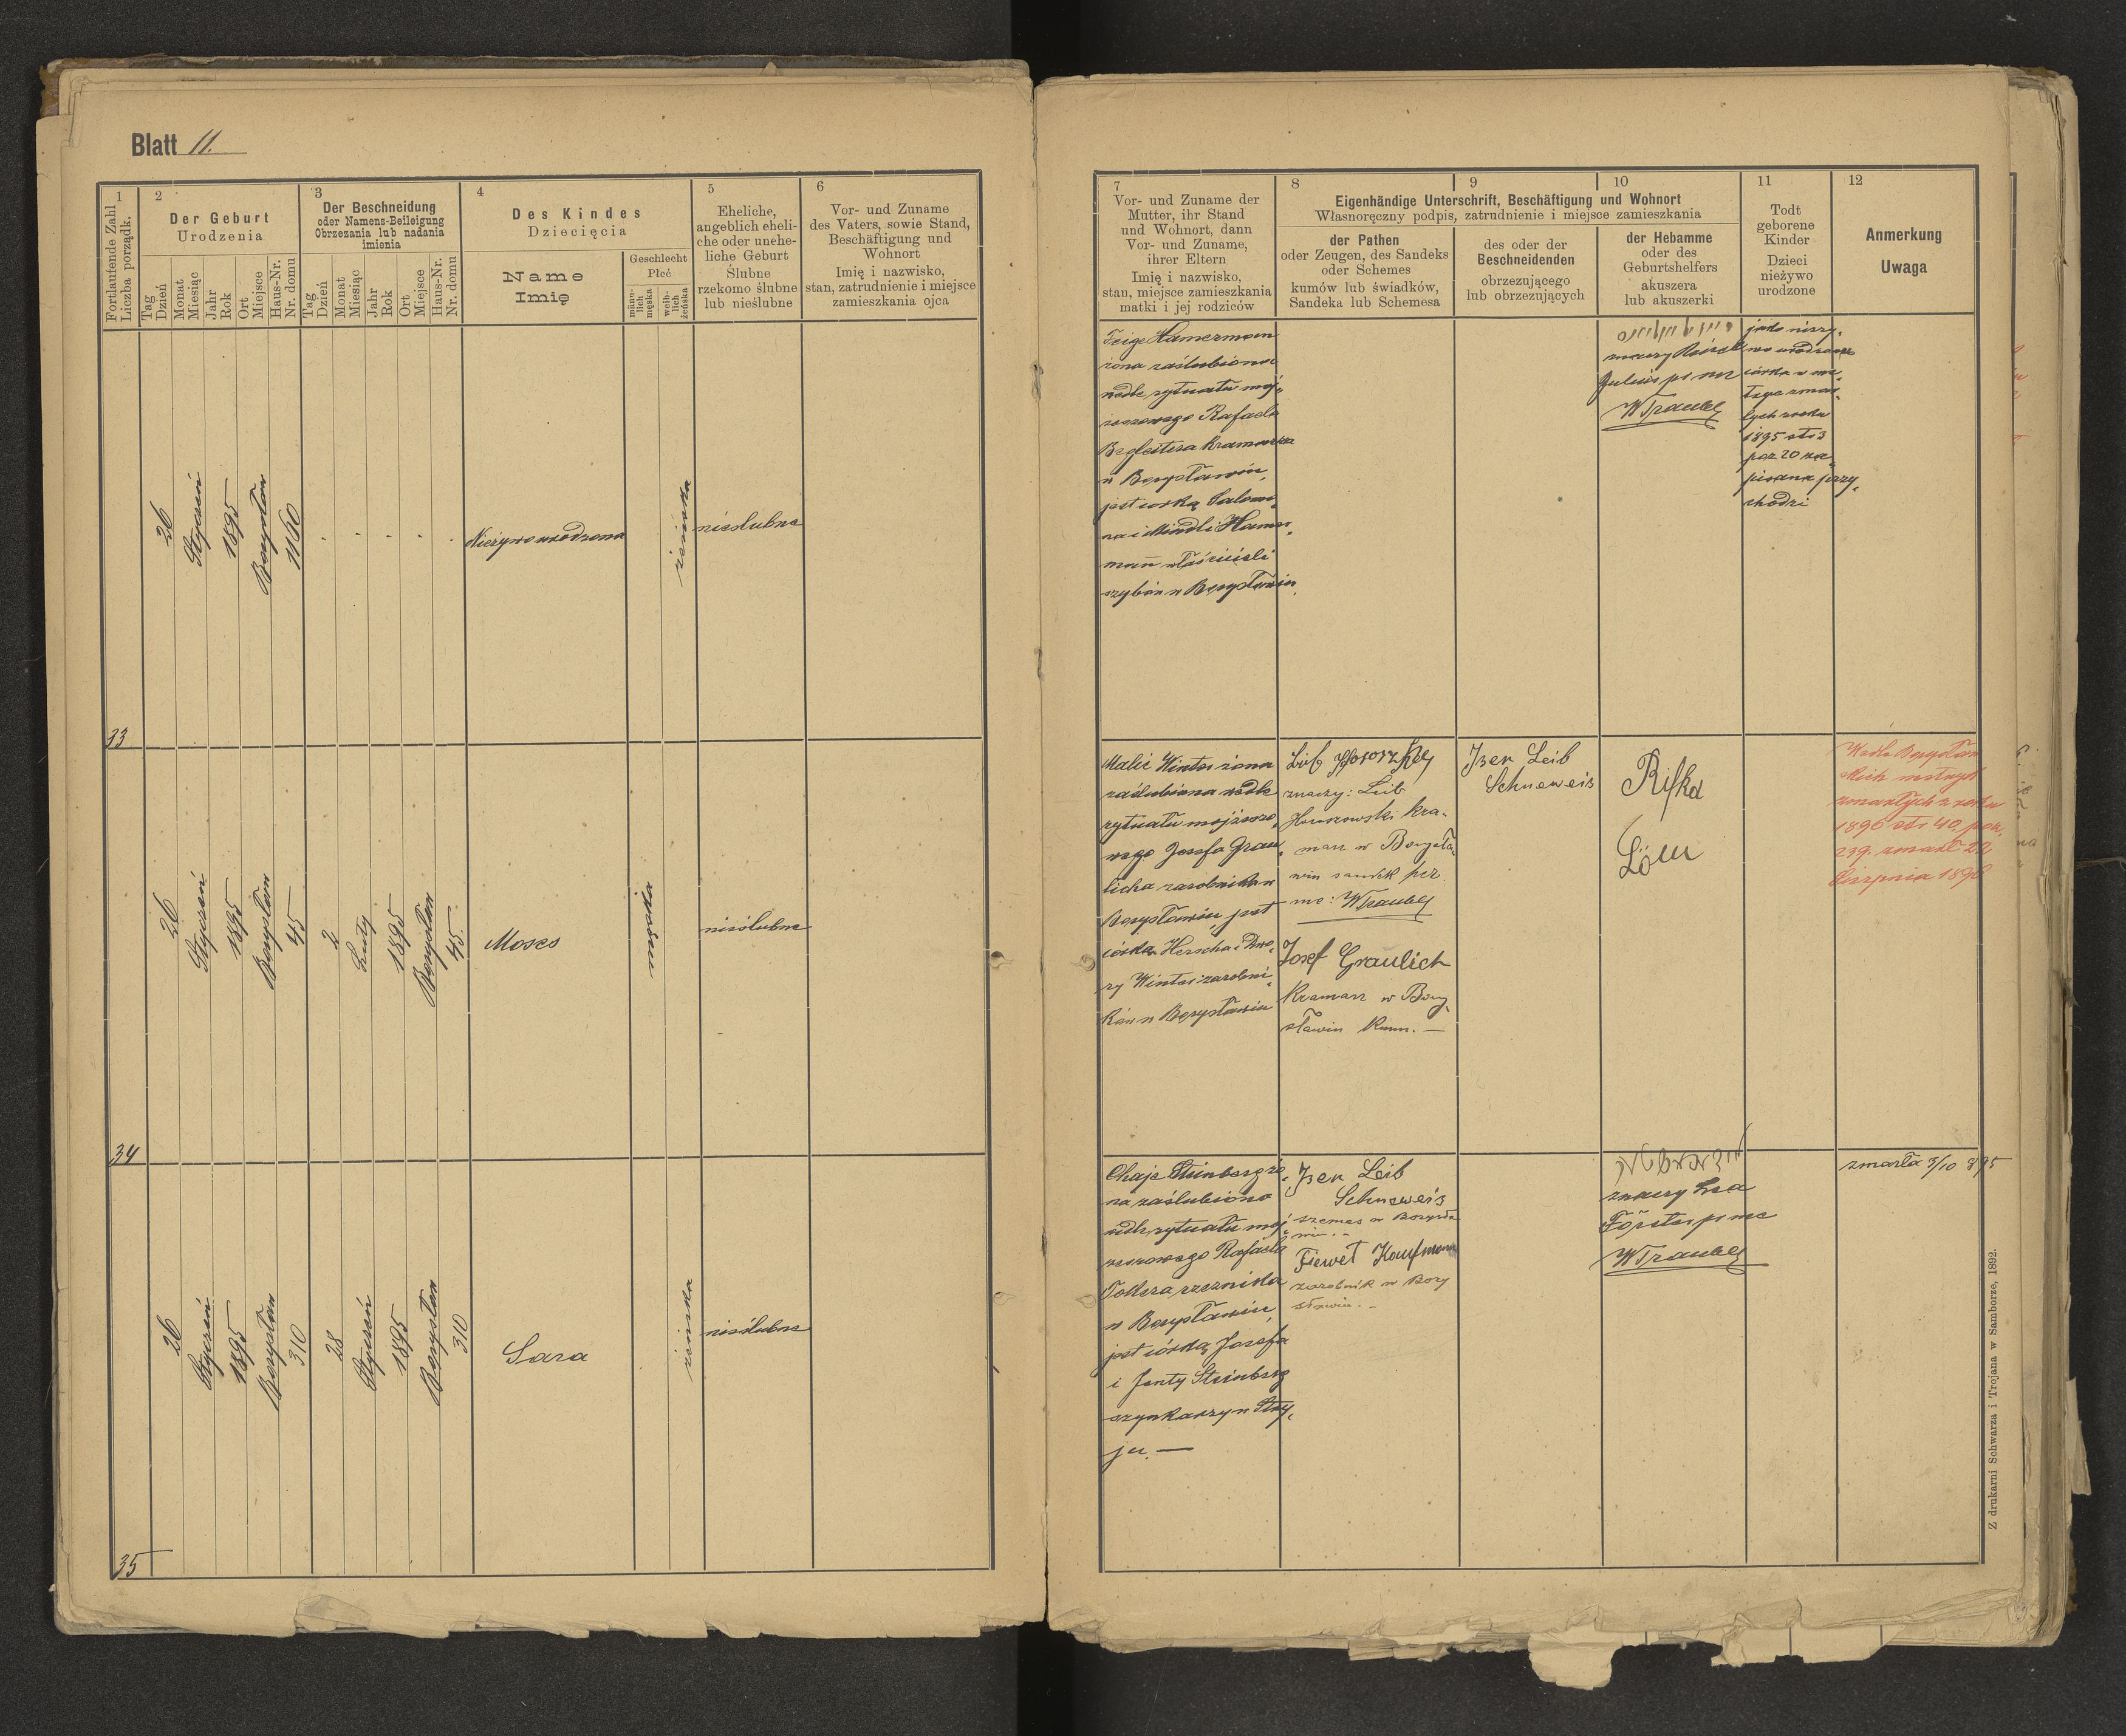 Blatt 11.
1
2
3
4
5
6
Fortlaufende Zahl
Liczba porządk.
Der Geburt
Urodzenia
Der Beschneidung
oder Namens-Beileigung
Obrzezania lub nadania
imienia
Des Kindes
Dziecięcia
Name
Imię
Geschlecht
Płeć
männ-
lich
męska
weib-
lich
żeńska
Tag
Dzień
Monat
Miesiąc
Jahr
Rok
Ort
Miejsce
Haus-Nr.
Nr. domu
Tag
Dzień
Monat
Miesiąc
Jahr
Rok
Ort
Miejsce
Haus-Nr.
Nr. domu
Eheliche,
angeblich eheli-
che oder unehe-
liche Geburt
Ślubne
rzekomo ślubne
lub nieślubne
Vor- und Zuname
des Vaters, sowie Stand,
Beschäftigung und
Wohnort
Imię i nazwisko,
stan, zatrudnienie i miejsce
zamieszkania ojca
33
26
Styczeń
1895
Borysław
1160
Nieżywo urodzona
żeńska
nieślubne
34
26
Styczeń
1895
Borysław
45
2
Luty
1895
Borysław
45.
Moses
męska
nieślubne
35
26
Styczeń
1895
Borysław
310
28
Styczeń
1895
Borysław
310
Sara
żeńska
nieślubne
7
8
9
10
11
12
Vor- und Zuname der
Mutter, ihr Stand
und Wohnort, dann
Vor- und Zuname,
ihrer Eltern
Imię i nazwisko,
stan, miejsce zamieszkania
matki i jej rodziców
Eigenhändige Unterschrift, Beschäftigung und Wohnort
Własnoręczny podpis, zatrudnienie i miejsce zamieszkania
der Pathen
oder Zeugen, des Sandeks
oder Schemes
kumów lub świadków,
Sandeka lub Schemesa
des oder der
Beschneidenden
obrzezującego
lub obrzezujących
der Hebamme
oder des
Geburtshelfers
akuszera
lub akuszerki
Todt
geborene
Kinder
Dzieci
nieżywo
urodzone
Anmerkung
Uwaga
Feige Hamermann
żona zaślubiona
wedle rytuału moj-
żeszowego Rafaela
Begleitera kramarza
w Borysławiu,
jest córką Salomo-
na i Mindli Hamer-
mann właścicieli
szybów w Borysławiu.
WTraubel
jako nieży-
wo urodzona
1895 str 3
poz 20 za-
pisana przy-
chodzi
Malie Winter żona
zaślubiona wedle
rytuału mojżeszo-
wego Josefa Grau-
licha zarobnika w
Borysławiu, jest
córką Herscha i Dwo-
ry Winter zarobni-
ków w Borysławiu
znaczy: Leib
kra-
marz w Borysła-
wiu sandek prz
mc: WTraubel
Josef Graulich
Kramarz w Bory-
sławiu Kum. —
Iser Leib
Schneweis
Rifka
Löw
Wedle Borysław
skich metryk
zmarłych z roku
1896 str 40 poz.
239. zmarł 22
Sierpnia 1896
Chaje Steinberg żo-
na zaślubiona
wedle rytuału moj-
żeszowego Rafaela
Tokera rzeźnika
w Borysławiu,
jest córką Josefa
i Jenty Steinberg
szynkarzy w Stry-
ju. —
Iser Leib
Schneweis
szemes w Borysła
wiu. -
Fiewel Kaufmann
zarobnik w Bory
sławiu. -
znaczy Lea
Förster pr mc
WTraubel
zmarła 3/10 895
Z drukarni Schwarza i Trojana w Samborze, 1892.